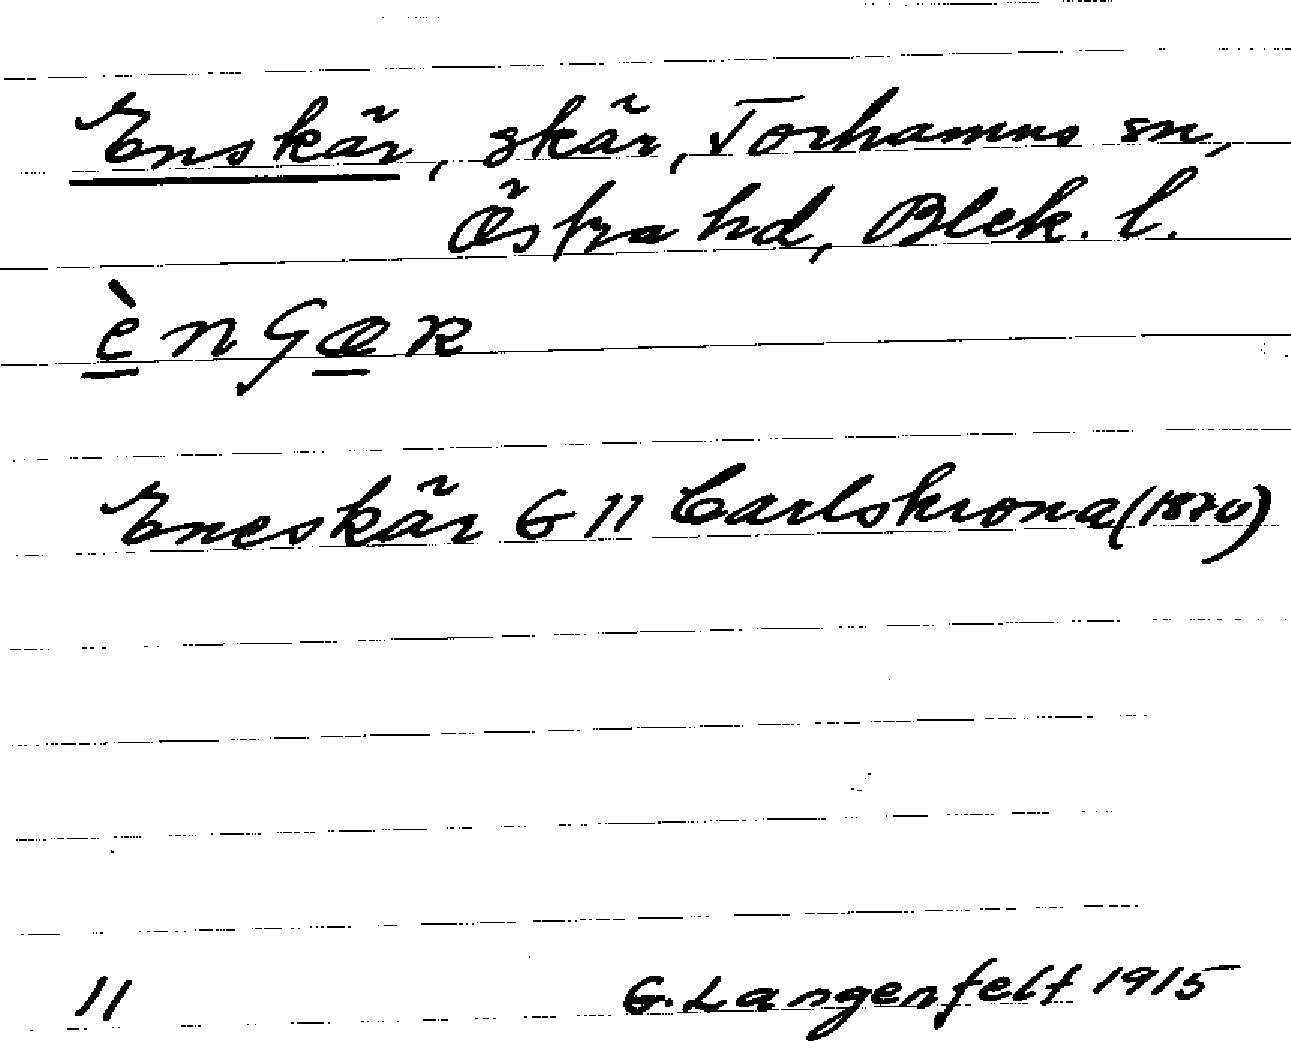 Enskär, skär, Torhamns sn,
Östra hd, Blek. l.
èn ʃæʀ
Eneskär G 11 Carlskrona (1870)
11 G. Langenfelt 1915